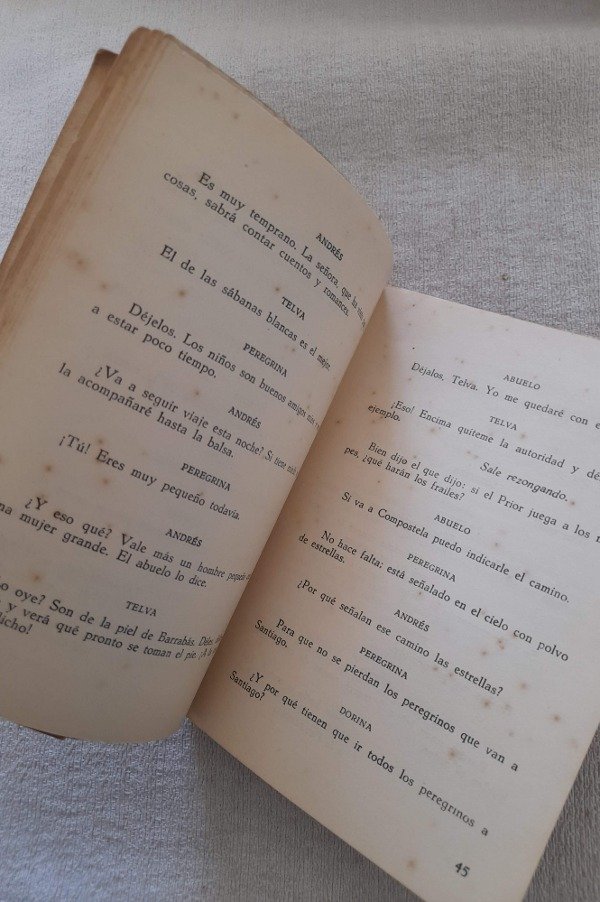 ANDRÉS
Es muy temprano. La señora, que ha
cosas, sabrá contar cuentos y romances.
TELVA
El de las sábanas blancas es el mejor.
PEREGRINA
Déjelos. Los niños son buenos amigos
a estar poco tiempo.
ANDRÉS
¿Va a seguir viaje esta noche? Si tiene
la acompañaré hasta la balsa.
PEREGRINA
¡Tú! Eres muy pequeño todavía.
ANDRÉS
¿Y eso qué? Vale más un hombre pequeño
mujer grande. El abuelo lo dice.
TELVA
oye? Son de la piel de Barrabás.
y verá qué pronto se toman el pie.
ABUELO
Déjalos, Telva. Yo me quedaré con
TELVA
¡Eso! Encima quíteme la autoridad y
ejemplo.
Sale rezongando.
Bien dijo el que dijo: si el Prior juega a los
pes, ¿qué harán los frailes?
ABUELO
Si va a Compostela puedo indicarle el camino.
PEREGRINA
No hace falta; está señalado en el cielo con polvo
de estrellas.
ANDRÉS
¿Por qué señalan ese camino las estrellas?
PEREGRINA
Para que no se pierdan los peregrinos que van a
Santiago.
DORINA
¿Y por qué tienen que ir todos los peregrinos a
Santiago?
45